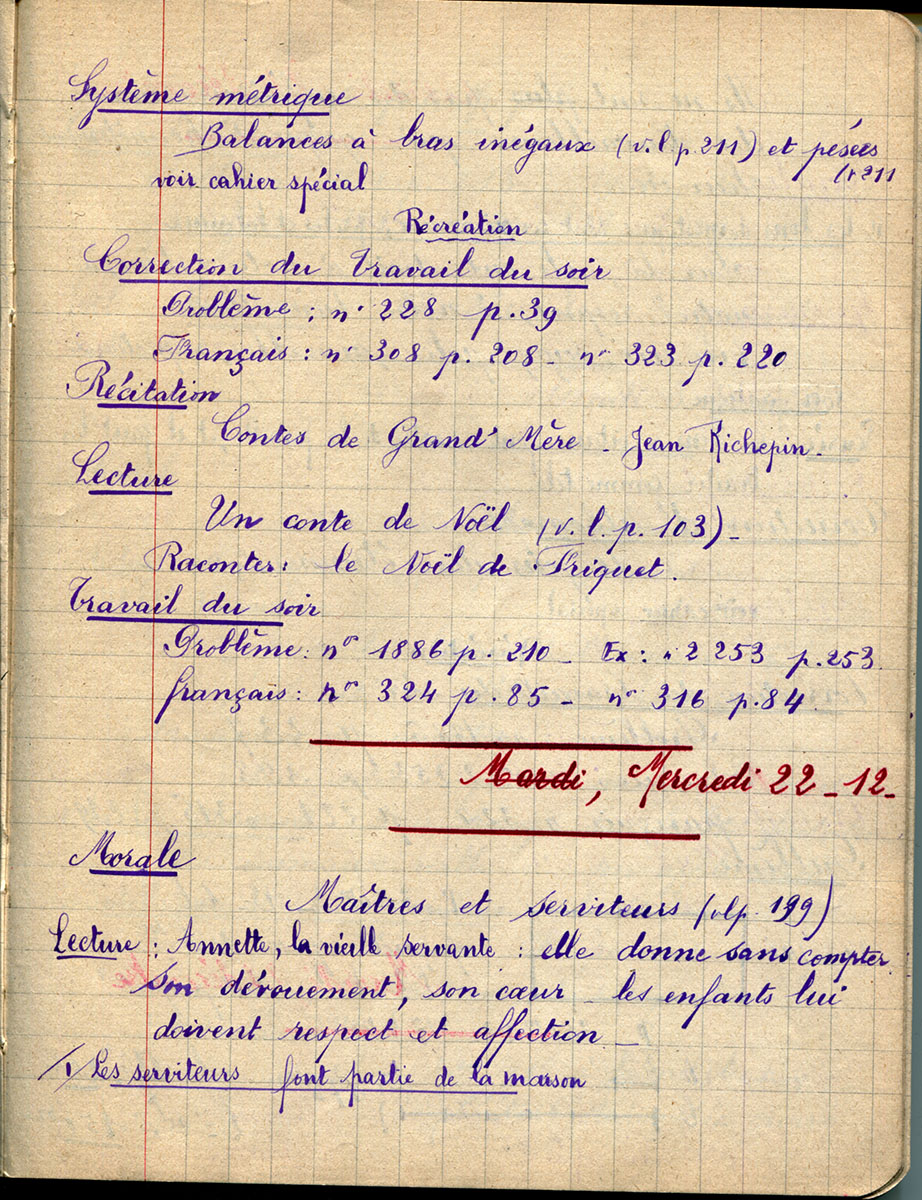 Système métrique
Balances à bras inégaux (v.l p.211) et pésées
(v 211
voir cahier spécial
Récréation
Correction du travail du soir
Problème : n° 228 p.39
Français : n° 308 p. 208 - n° 323 p. 220
Récitation
Contes de Grand'Mère - Jean Richepin.
Lecture
Un conte de Noël (v. l. p. 103) -
Raconter : le Noël de Friquet.
Travail du soir
Problème : n° 1886 p. 210 - Ex : n° 2253 p. 253.
français : n° 324 p. 85 - n° 316 p. 84.
Mardi, Mercredi 22 - 12 -
Morale
Maîtres et serviteurs (vlp. 199)
Lecture : Annette, la vieille servante : elle donne sans compter
son dévouement, son cœur - les enfants lui
doivent respect et affection -
1/ Les serviteurs font partie de la maison